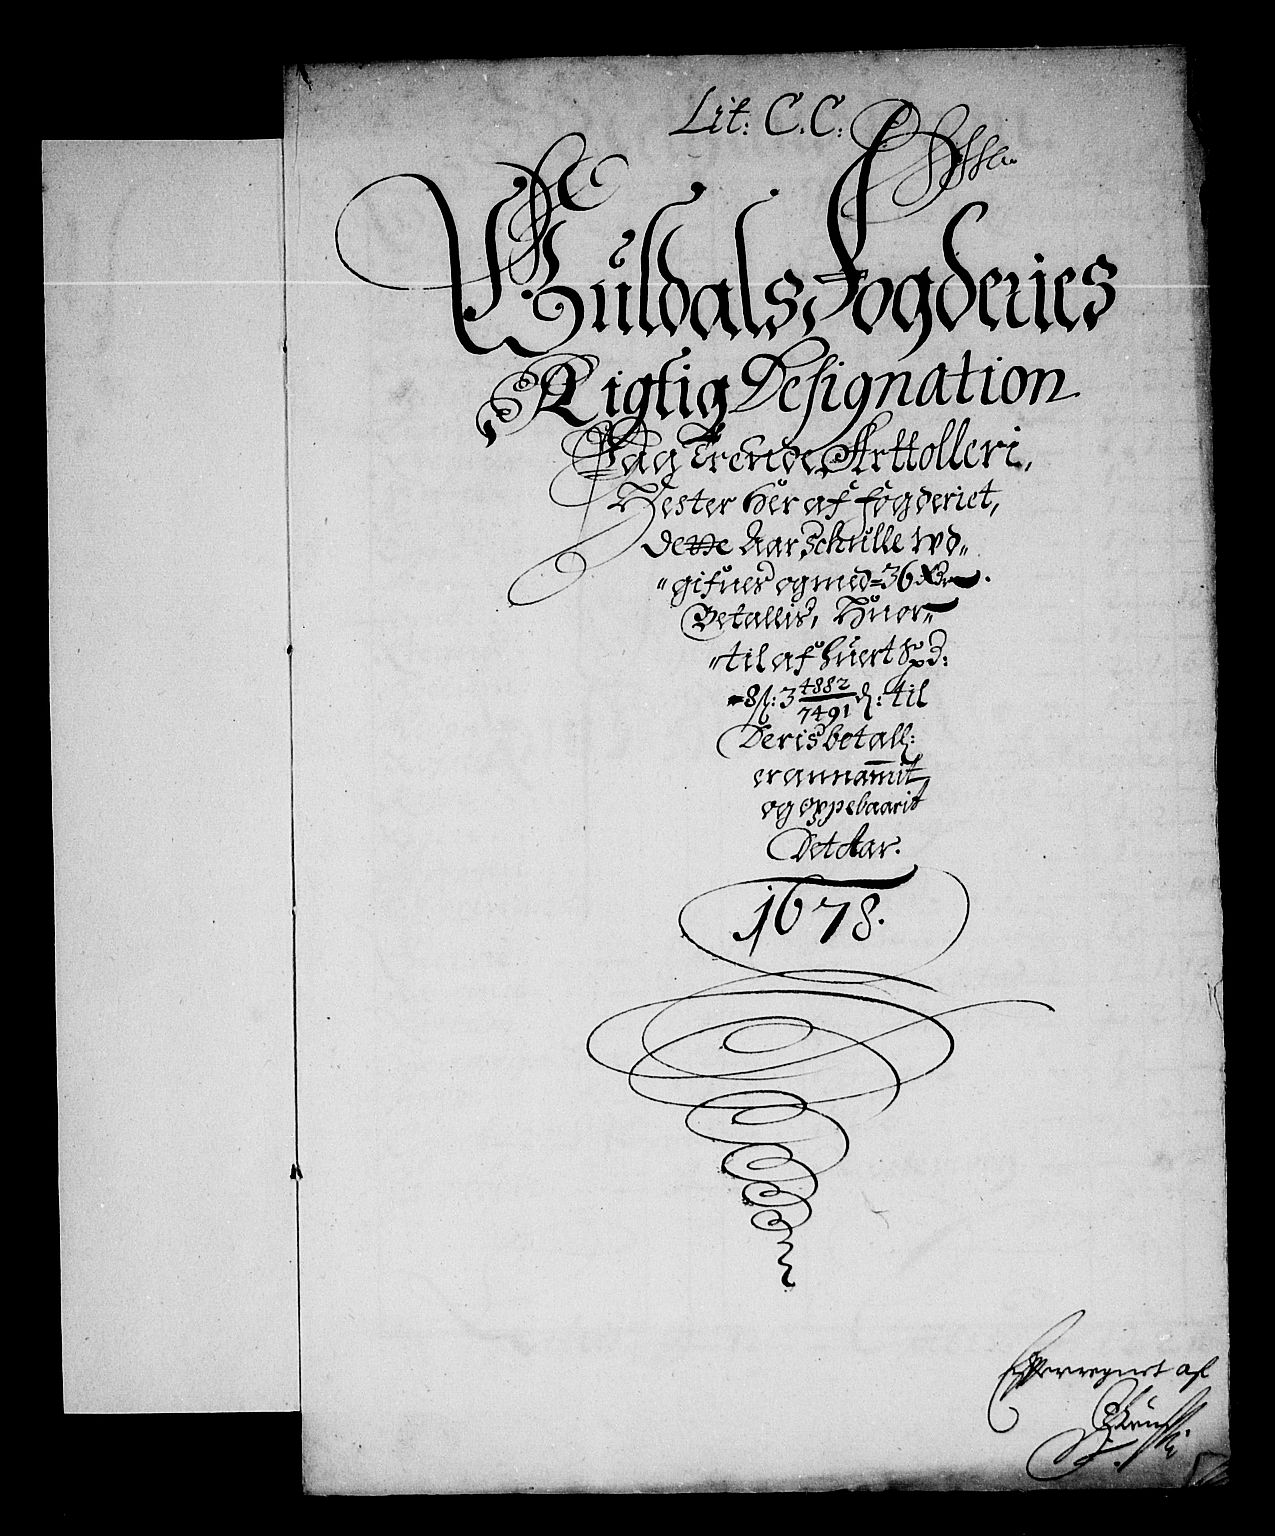 Lit: C. C:
Guldals Fogderies
Rigtig Designation
Paa Trende Arttolleri,
Hester her af fogderiet,
dette Aar schulle wd„
„gifues og med = 36 Rdr.
Betallis, Huor„
„til af huert Spd:
= 8 ſ: 3 4882/7491 d: til
Deris betall:
er annammit
og oppebaarit
Det Aar.
1678.
Efterregnet af